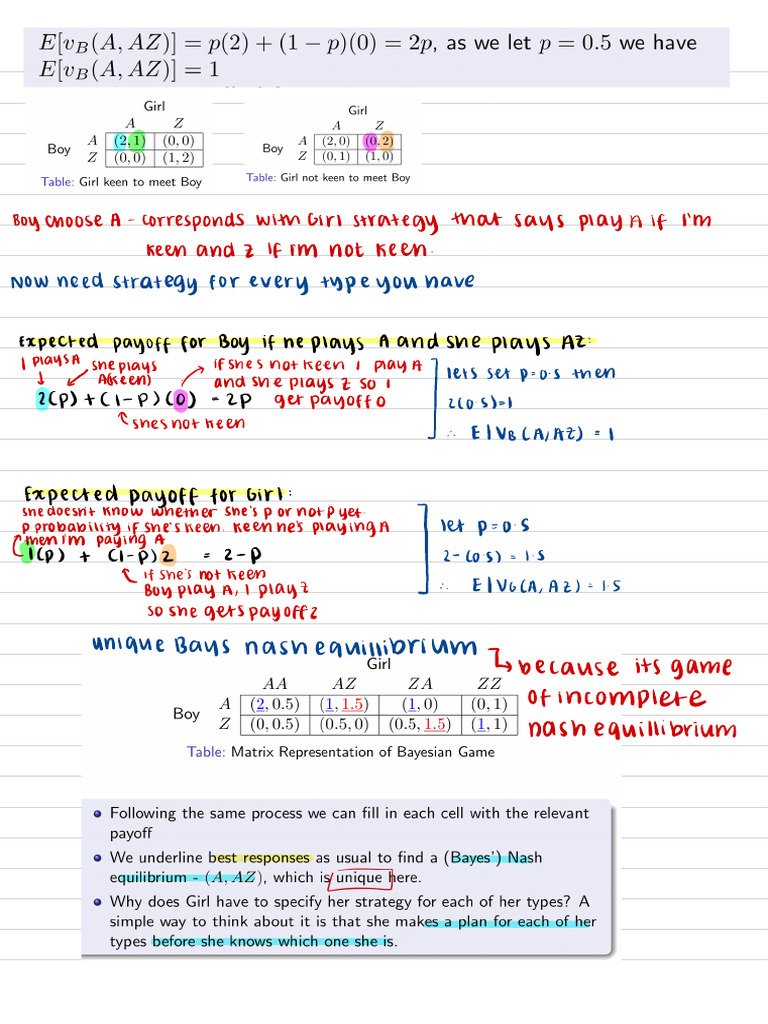 E[v_B(A, AZ)] = p(2) + (1 − p)(0) = 2p, as we let p = 0.5 we have
E[v_B(A, AZ)] = 1
Girl
A Z
Boy A (2, 1) (0, 0)
Z (0, 0) (1, 2)
Table: Girl keen to meet Boy
Girl
A Z
Boy A (2, 0) (0, 2)
Z (0, 1) (1, 0)
Table: Girl not keen to meet Boy
Boy choose A - corresponds with Girl strategy that says play A if I'm
keen and Z if im not keen.
Now need strategy for every type you have
Expected payoff for Boy if he plays A and she plays AZ:
I plays A
she plays
A(keen)
if she's not keen I play A
and she plays Z so I
get payoff 0
2(p) + (1-p)(0) = 2p
she's not keen
lets set p=0.5 then
2(0.5)=1
∴ E|V_B(A,AZ) = 1
Expected payoff for Girl:
she doesn't know whether she's p or not p yet.
p probability if she's keen. keen he's playing A
then i'm paying A
1(p) + (1-p)2 = 2-p
if she's not keen
Boy play A, I play Z
so she gets payoff 2
let p=0.5
2-(0.5) = 1.5
∴ E|V_G(A, AZ) = 1.5
unique Bays nash equillibrium
because its game
of incomplete
nash equillibrium
Girl
AA AZ ZA ZZ
Boy A (2, 0.5) (1, 1.5) (1, 0) (0, 1)
Z (0, 0.5) (0.5, 0) (0.5, 1.5) (1, 1)
Table: Matrix Representation of Bayesian Game
Following the same process we can fill in each cell with the relevant
payoff
We underline best responses as usual to find a (Bayes') Nash
equilibrium - (A, AZ), which is unique here.
Why does Girl have to specify her strategy for each of her types? A
simple way to think about it is that she makes a plan for each of her
types before she knows which one she is.